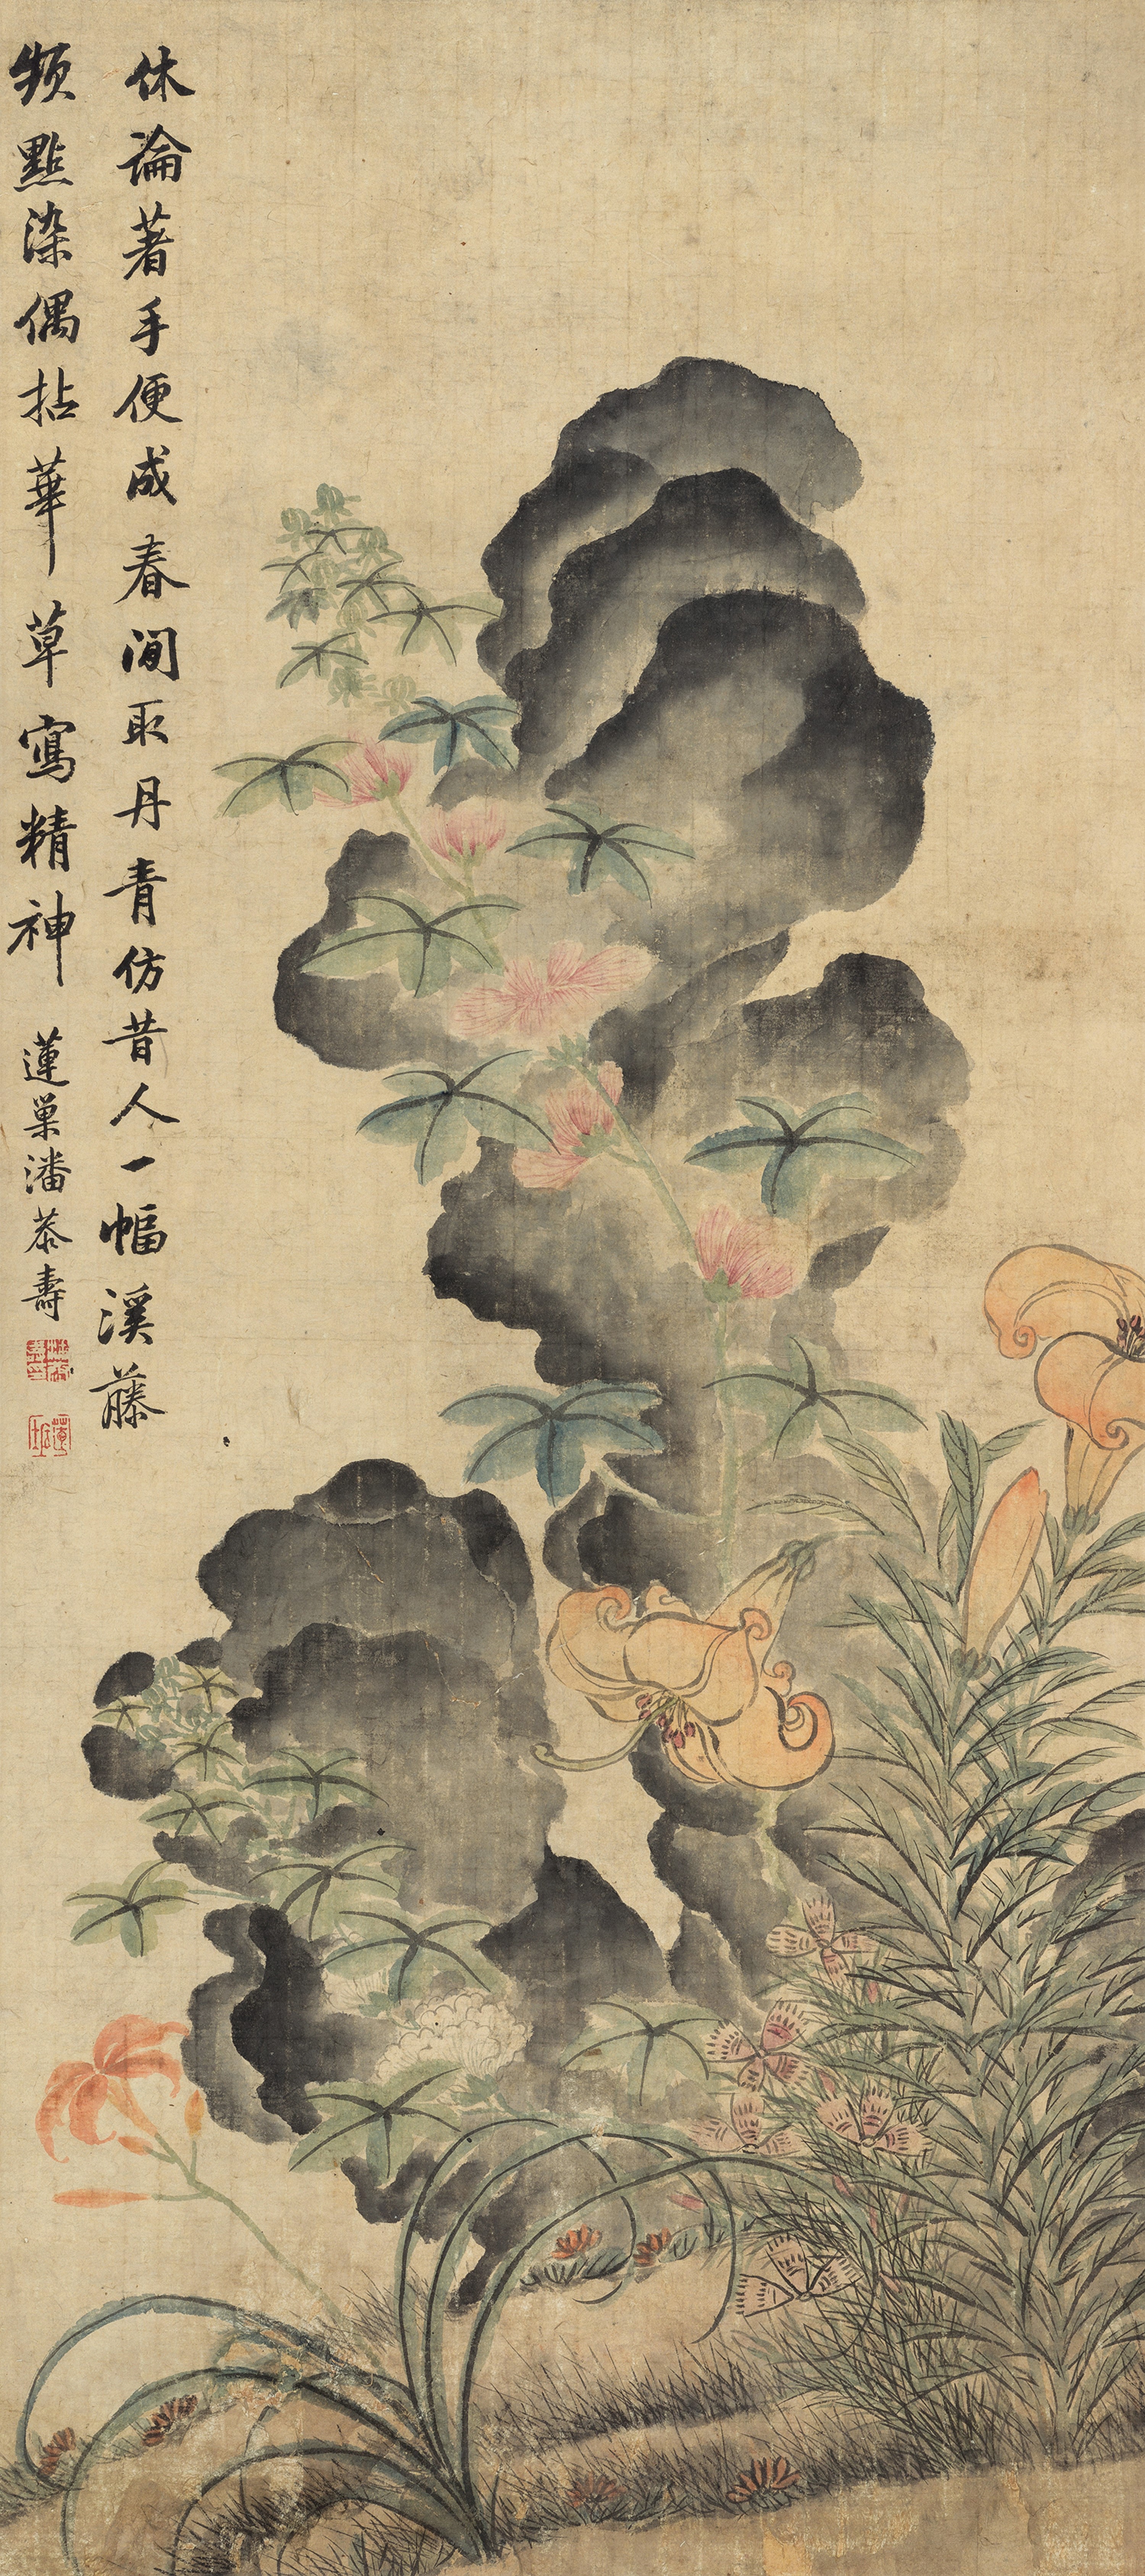 休論著手便成春閒取丹青仿昔人一幅溪藤
頻點染偶拈華草寫精神
蓮巢潘恭壽